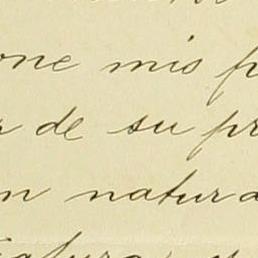 one mis p
r de su pr
n natura